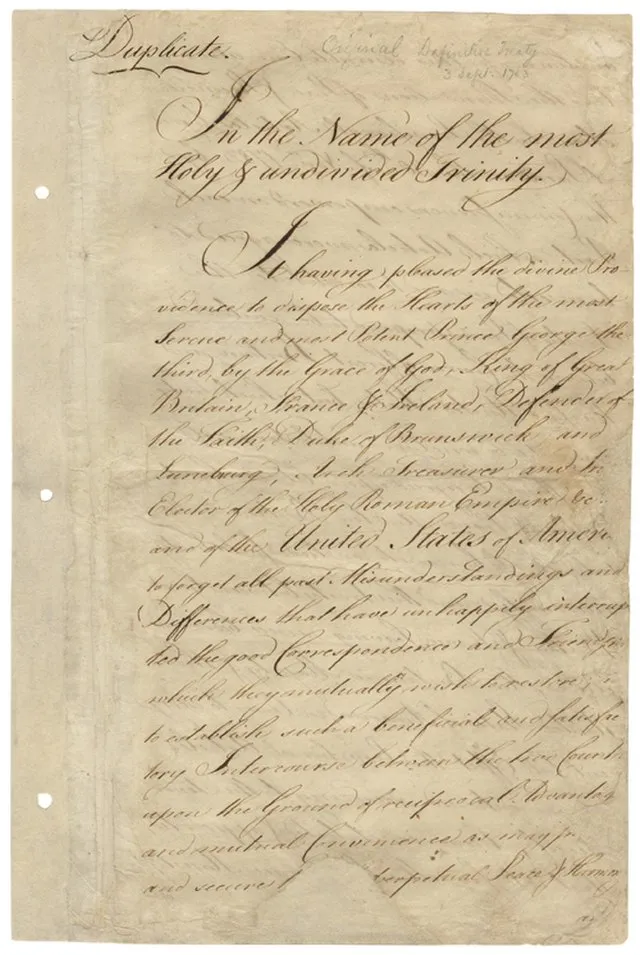 Duplicate.
Original Definitive Treaty
3 Sept. 1783
In the Name of the most
Holy & undivided Trinity.
It having pleased the divine Pro
vidence to dispose the Hearts of the most
Serene and most Potent Prince George the
third, by the Grace of God, King of Great
Britain, France & Ireland, Defender of
the Faith, Duke of Brunswick and
Luneburg, Arch Treasurer and
Elector of the Holy Roman Empire &c.
and of the United States of Ameri
to forget all past Misunderstandings and
Differences that have unhappily interrup
ted the good Correspondence and
which they mutually wish to restore;
to establish such a beneficial and satisfac
tory Intercourse between the two Count
upon the Ground of reciprocal Advantag
and mutual Convenience as may
and secure perpetual Peace & Harmon